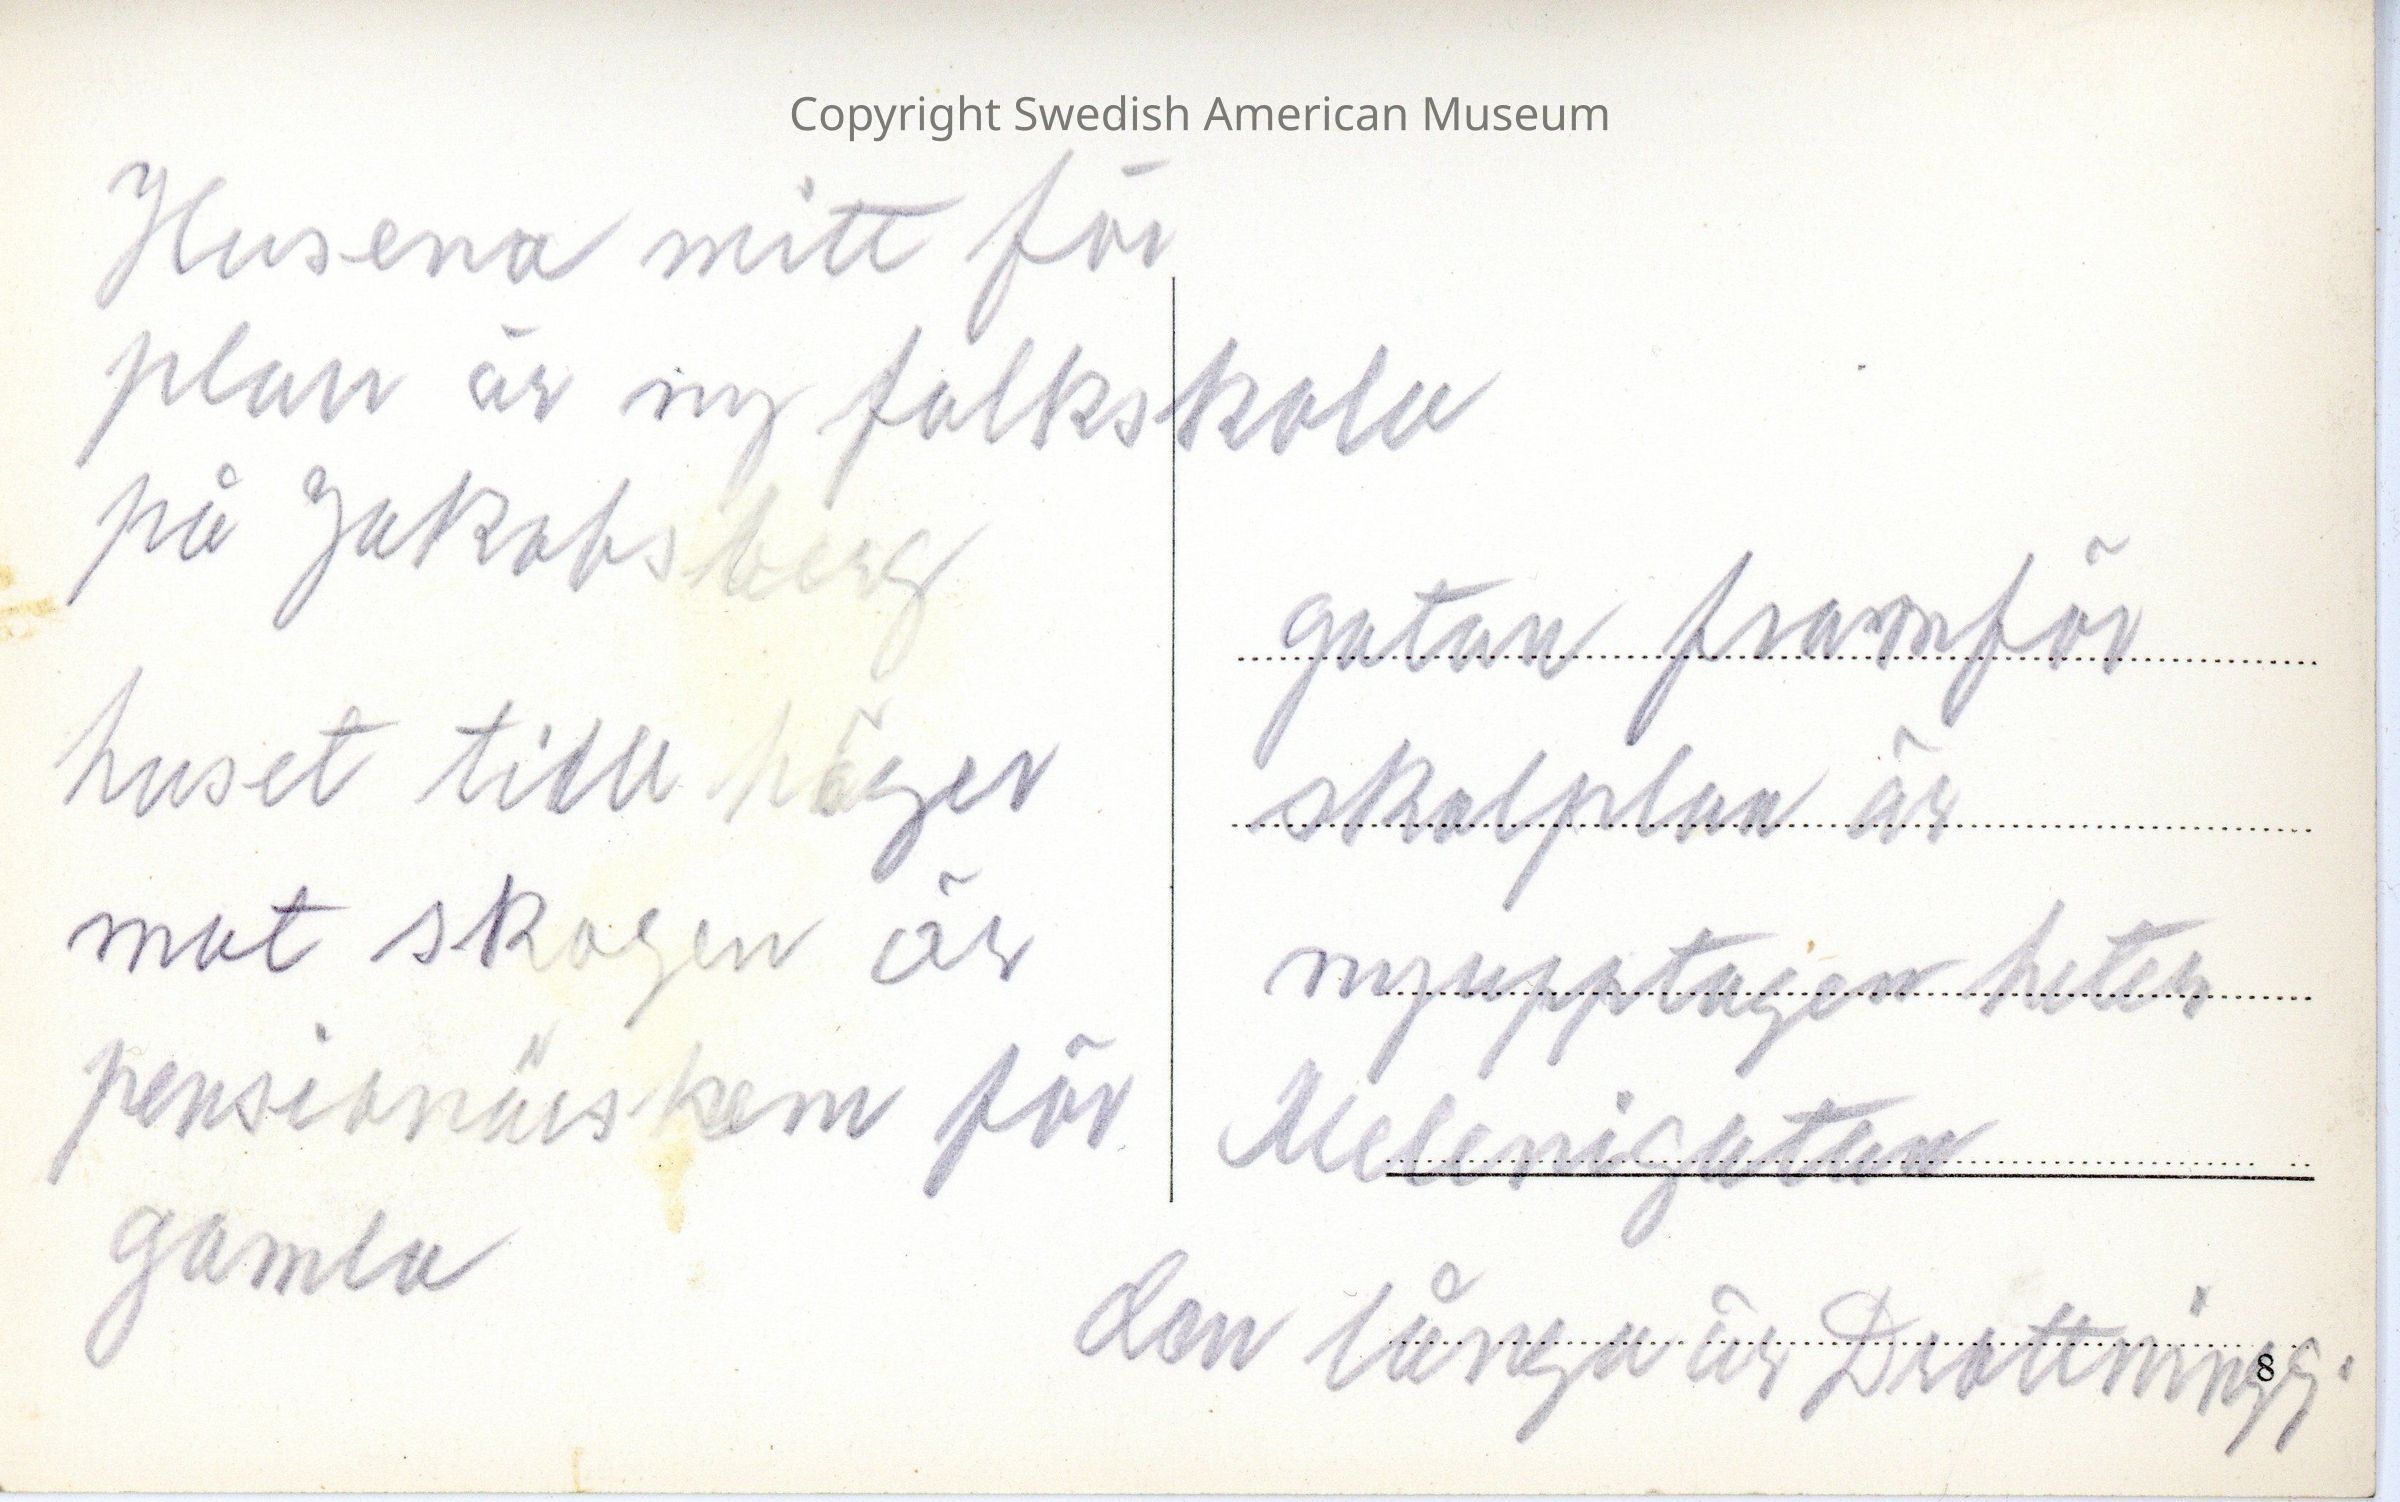 Copyright Swedish American Museum
Husena mitt för
plan är ny folkskola
på Jakobsberg
huset till höger
mot skogen är
pensionärshem för
gamla
gatan framför
skolplan är
nyupptagen heter
den långa är Drottningg.
8